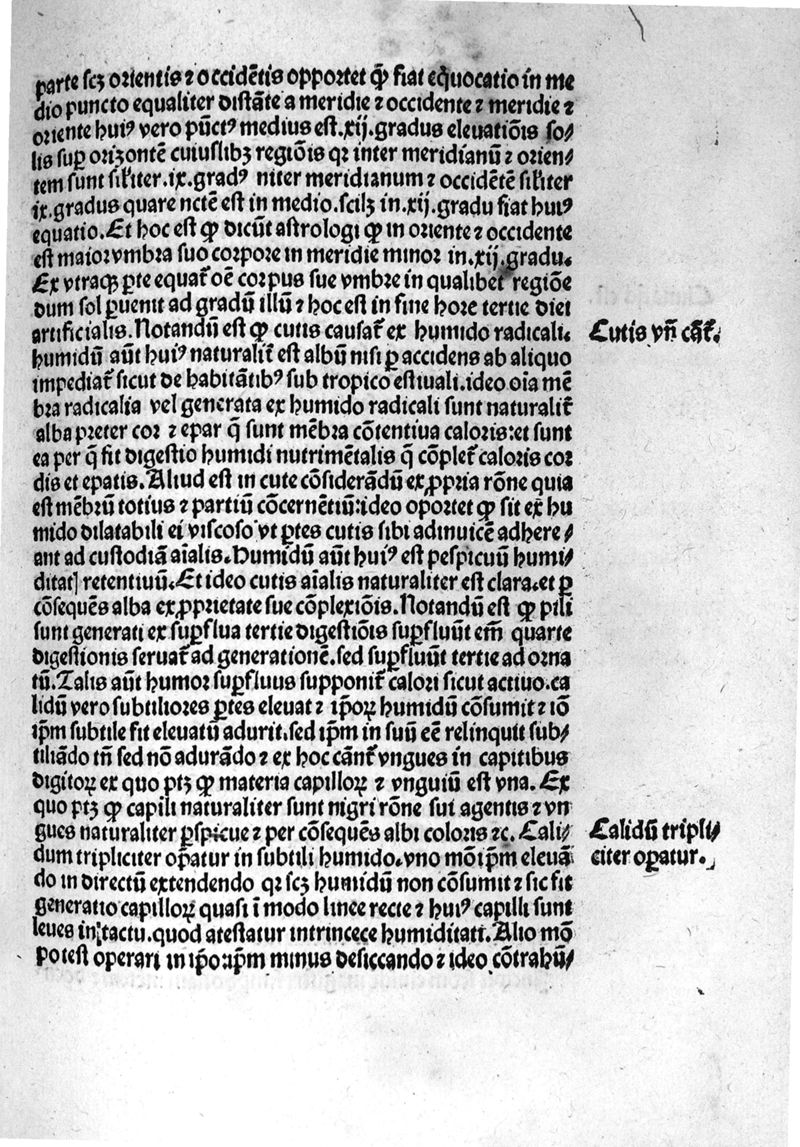 parte scꝫ orientis ⁊ occidẽtis opportet ꝙ̃ fiat eq̃uocatio in me
dio puncto equaliter distãte a meridie ⁊ occidente ⁊ meridie ⁊
oriente huiꝰ vero pũctꝰ medius est.xij.gradus eleuatiõis so⸗
lis sup̱ orizontẽ cuiuslibꝫ regiõis qꝛ inter meridianũ ⁊ orien⸗
tem sunt sil̃iter.ix.gradꝰ niter meridianum ⁊ occidẽtẽ sil̃iter
ix.gradus quare nctẽ est in medio.scilꝫ in.xij.gradu fiat huiꝰ
equatio.Et hoc est ꝙ dicũt astrologi ꝙ in oriente ⁊ occidente
est maior vmbra suo corpore in meridie minor in.xij.gradu.
Ex vtraqꝫ ꝑte equat᷑ oẽ corpus sue vmbre in qualibet regiõe
dum sol ꝑuenit ad gradũ illũ ⁊ hoc est in fine hore tertie diei
artificialis.Notandũ est ꝙ cutis causat᷑ ex humido radicali.
Cutis vñ cãt᷑.
humidũ aũt huiꝰ naturalit᷑ est albũ nisi ꝑ accidens ab aliquo
impediat᷑ sicut de habitãtibꝰ sub tropico estiuali.ideo oĩa mẽ
bra radicalia vel generata ex humido radicali sunt naturalit᷑
alba preter cor ⁊ epar q̃ sunt mẽbra cõtentiua caloris:et sunt
ea per q̃ fit digestio humidi nutrimẽtalis q̃ cõplet᷑ caloris cor
dis et epatis.Aliud est in cute cõsiderãdũ ex ꝓpria rõne quia
est mẽbrũ totius ⁊ partiũ cõcernẽtiũ:ideo oportet ꝙ sit ex hu
mido dilatabili ei viscoso vt ꝑtes cutis sibi adinuicẽ adhere⸗
ant ad custodiã aĩalis.Humidũ aũt huiꝰ est pespicuũ humi⸗
ditat] retentiuũ.Et ideo cutis aĩalis naturaliter est clara.et ꝑ
cõsequẽs alba ex ꝓprietate sue cõplexiõis.Notandũ est ꝙ pili
sunt generati ex suꝑflua tertie digestiõis suꝑfluũt em̃ quarte
digestionis seruat᷑ ad generationẽ.sed suꝑfluũt tertie ad orna
tũ.Talis aũt humor suꝑfluus supponit᷑ calori sicut actiuo.ca
lidũ vero subtiliores ꝑtes eleuat ⁊ ip̃oꝝ humidũ cõsumit ⁊ iõ
ip̃m subtile fit eleuatũ adurit.sed ip̃m in suũ eẽ relinquit sub⸗
tiliãdo tñ sed nõ adurãdo ⁊ ex hoc cãnt᷑ vngues in capitibus
digitoꝝ ex quo ptꝫ ꝙ materia capilloꝝ ⁊ vnguiũ est vna. Ex
quo ptꝫ ꝙ capili naturaliter sunt nigri rõne sui agentis ⁊ vn
gues naturaliter ꝑspicue ⁊ per cõsequẽs albi coloris ⁊c. Cali⸗
Calidũ tripli⸗
dum tripliciter oꝑatur in subtili humido.vno mõ ip̃m eleuã
citer oꝑatur.
do in directũ extendendo qꝛ scꝫ humidũ non cõsumit ⁊ sic fit
generatio capilloꝝ quasi ĩ modo linee recte ⁊ huiꝰ capilli sunt
leues in tactu.quod atestatur intrincece humiditati.Alio mõ
potest operari in ip̃o:ip̃m minus desiccando ⁊ ideo cõtrahũ⸗